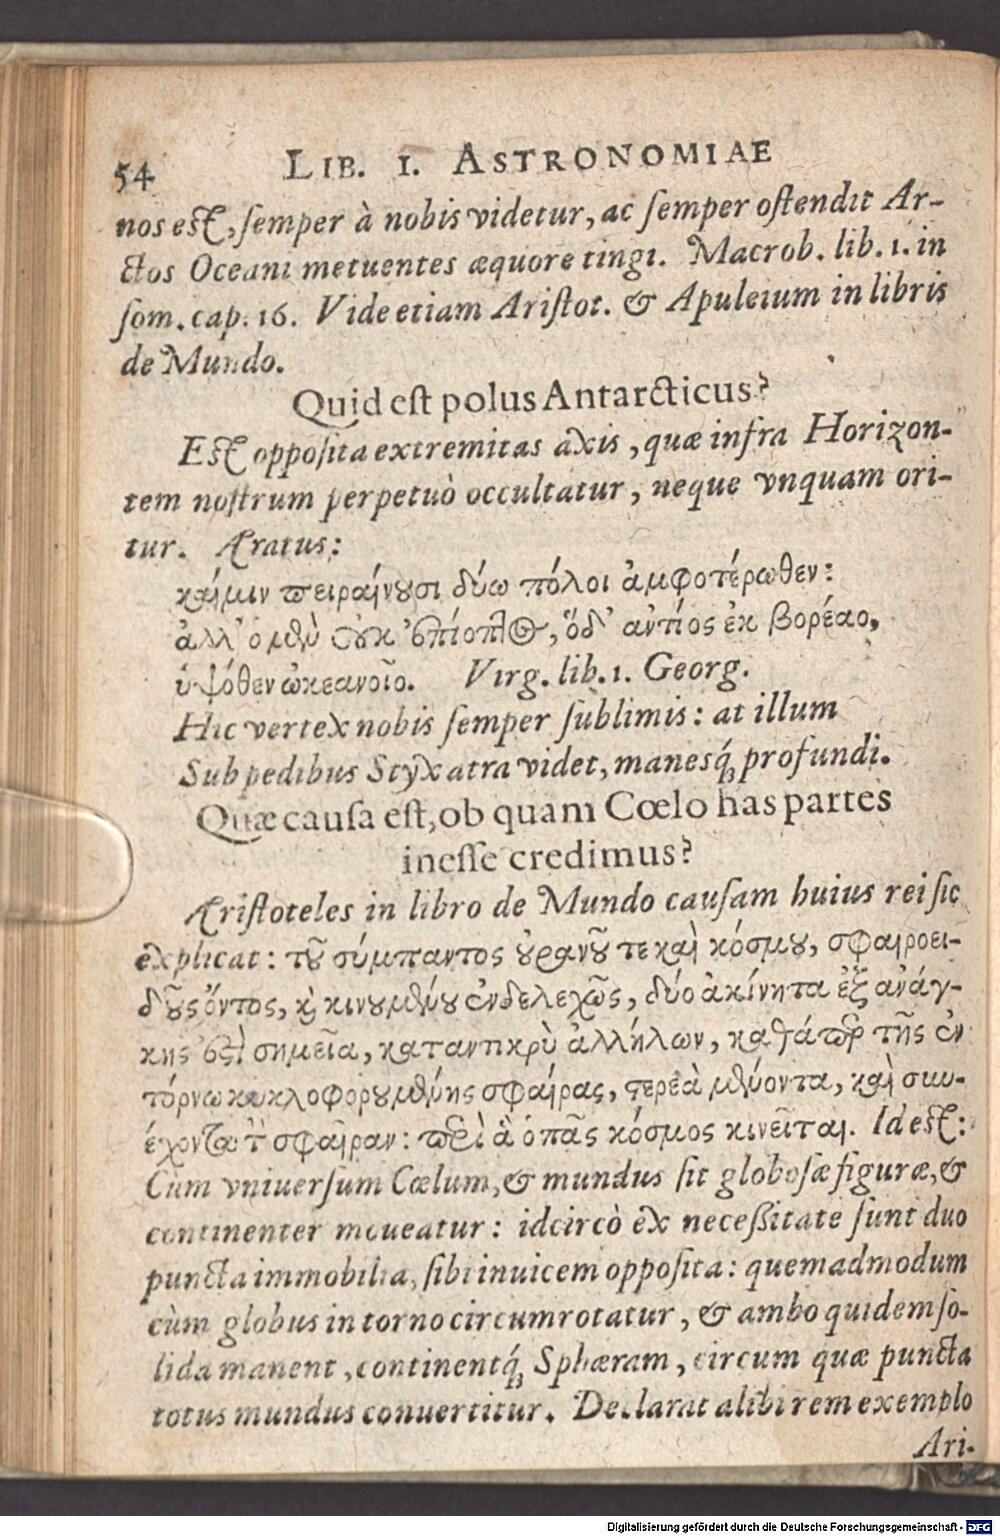 54 LIB. I. ASTRONOMIAE
nos est, semper à nobis videtur, ac semper ostendit Ar-
ctos Oceani metuentes æquore tingi. Macrob. lib. 1. in
som. cap. 16. Vide etiam Aristot. & Apuleium in libris
de Mundo.
Quid est polus Antarcticus?
Est opposita extremitas axis, quæ infra Horizon-
tem nostrum perpetuò occultatur, neque vnquam ori-
tur. Aratus:
καί μιν πειραίνουσι δύω πόλοι ἀμφοτέρωθεν:
ἀλλ' ὁ μὲν οὐκ ἐπίοπτος, ὅδ' ἀντίος ἐκ βορέαο,
ὑψόθεν ὠκεανοῖο. Virg. lib. 1. Georg.
Hic vertex nobis semper sublimis: at illum
Sub pedibus Styx atra videt, manesq́; profundi.
Quæ causa est, ob quam Cœlo has partes
inesse credimus?
Aristoteles in libro de Mundo causam huius rei sic
explicat: τοῦ σύμπαντος οὐρανοῦ τε καὶ κόσμου, σφαιροει-
δοῦς ὄντος, καὶ κινουμένου ἐνδελεχῶς, δύο ἀκίνητα ἐξ ἀνάγ-
κης ἐστὶ σημεῖα, καταντικρὺ ἀλλήλων, καθάπερ τῆς ἐν
τόρνω κυκλοφορουμένης σφαίρας, στερεὰ μένοντα, καὶ συν-
έχοντα τὴν σφαῖραν: περὶ ἃ ὁ πᾶς κόσμος κινεῖται. Id est:
Cùm vniuersum Cœlum, & mundus sit globosæ figuræ, &
continenter moueatur: idcircò ex necessitate sunt duo
puncta immobilia, sibi inuicem opposita: quemadmodum
cùm globus in torno circumrotatur, & ambo quidem so-
lida manent, continentq́; Sphæram, circum quæ puncta
totus mundus conuertitur. Declarat alibi rem exemplo
Ari-
Digitalisierung gefördert durch die Deutsche Forschungsgemeinschaft - DFG